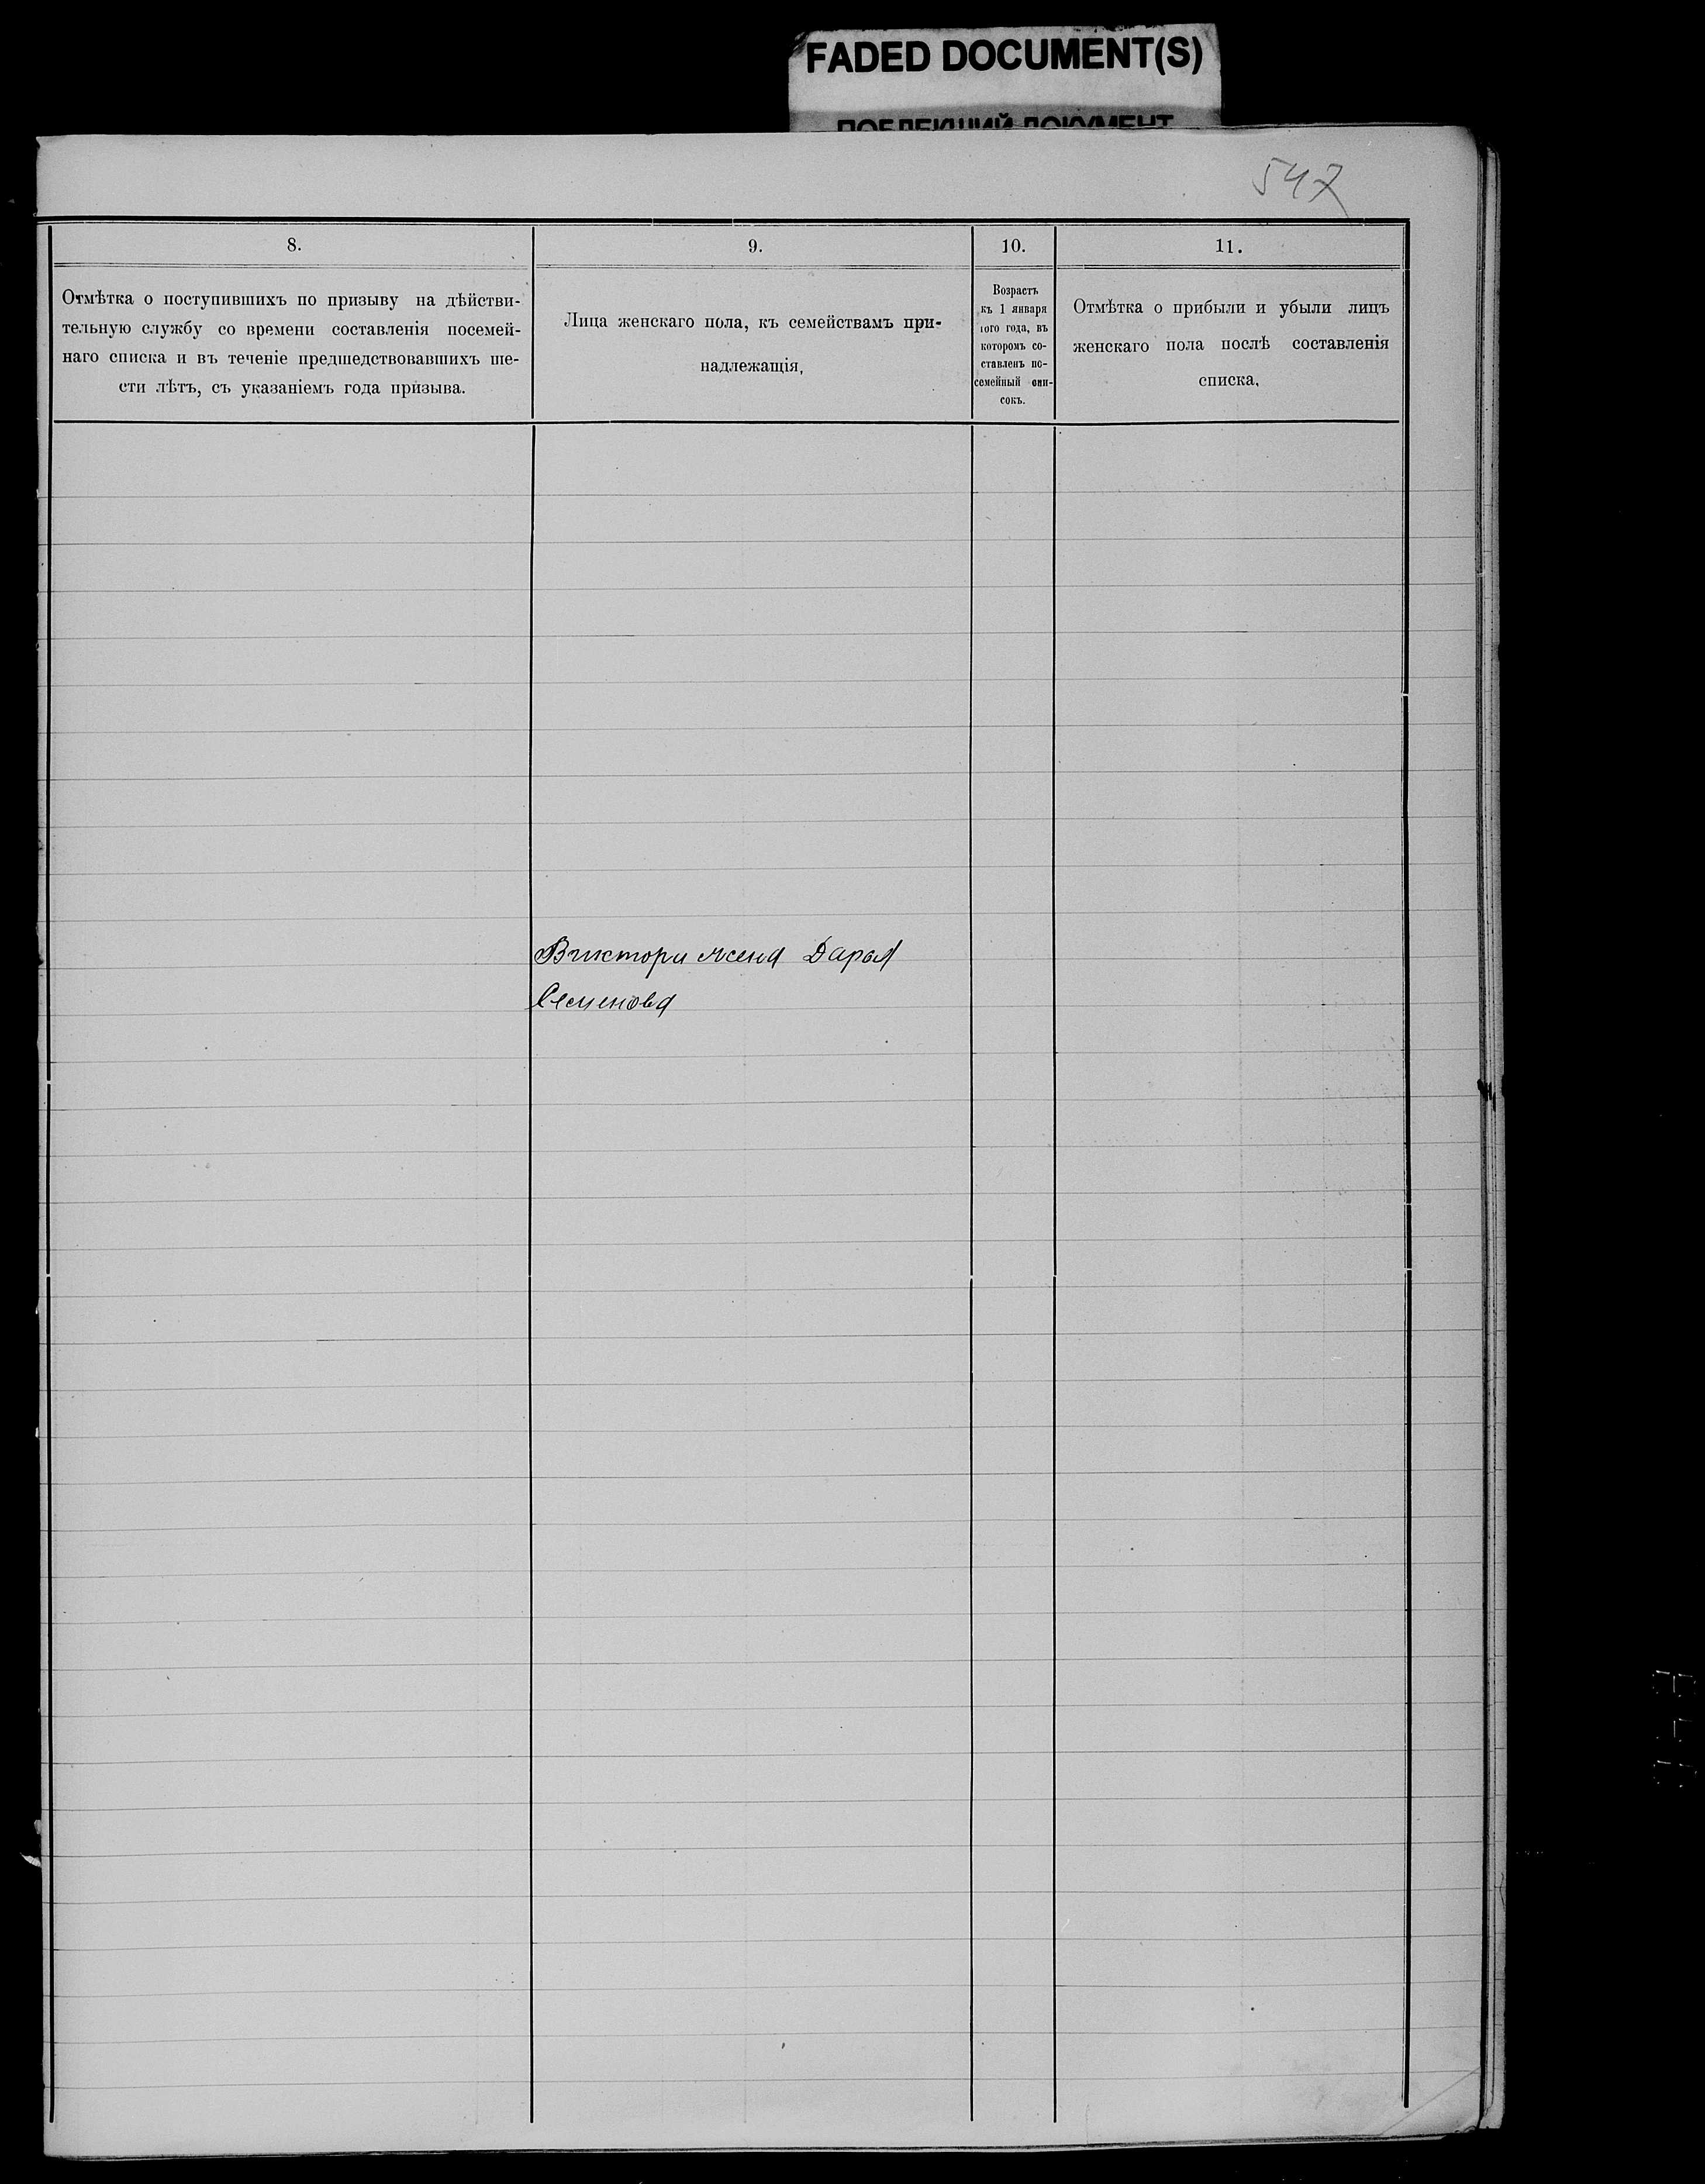 FADED DOCUMENT(S)
ПОБЛЕКШИЙ ДОКУМЕНТ
547
8.
9.
10.
11.
Отмѣтка о поступившихъ по призыву на дѣйстви-
тельную службу со времени составленія посемей-
наго списка и въ теченіе предшедствовавшихъ ше-
сти лѣтъ, съ указаніемъ года призыва.
Лица женскаго пола, къ семействамъ при-
надлежащія,
Возрастъ
къ 1 января
того года, въ
которомъ со-
ставленъ по-
семейный спи-
сокъ.
Отмѣтка о прибыли и убыли лицъ
женскаго пола послѣ составленія
списка.
Виктори жена Дарья
Семенова